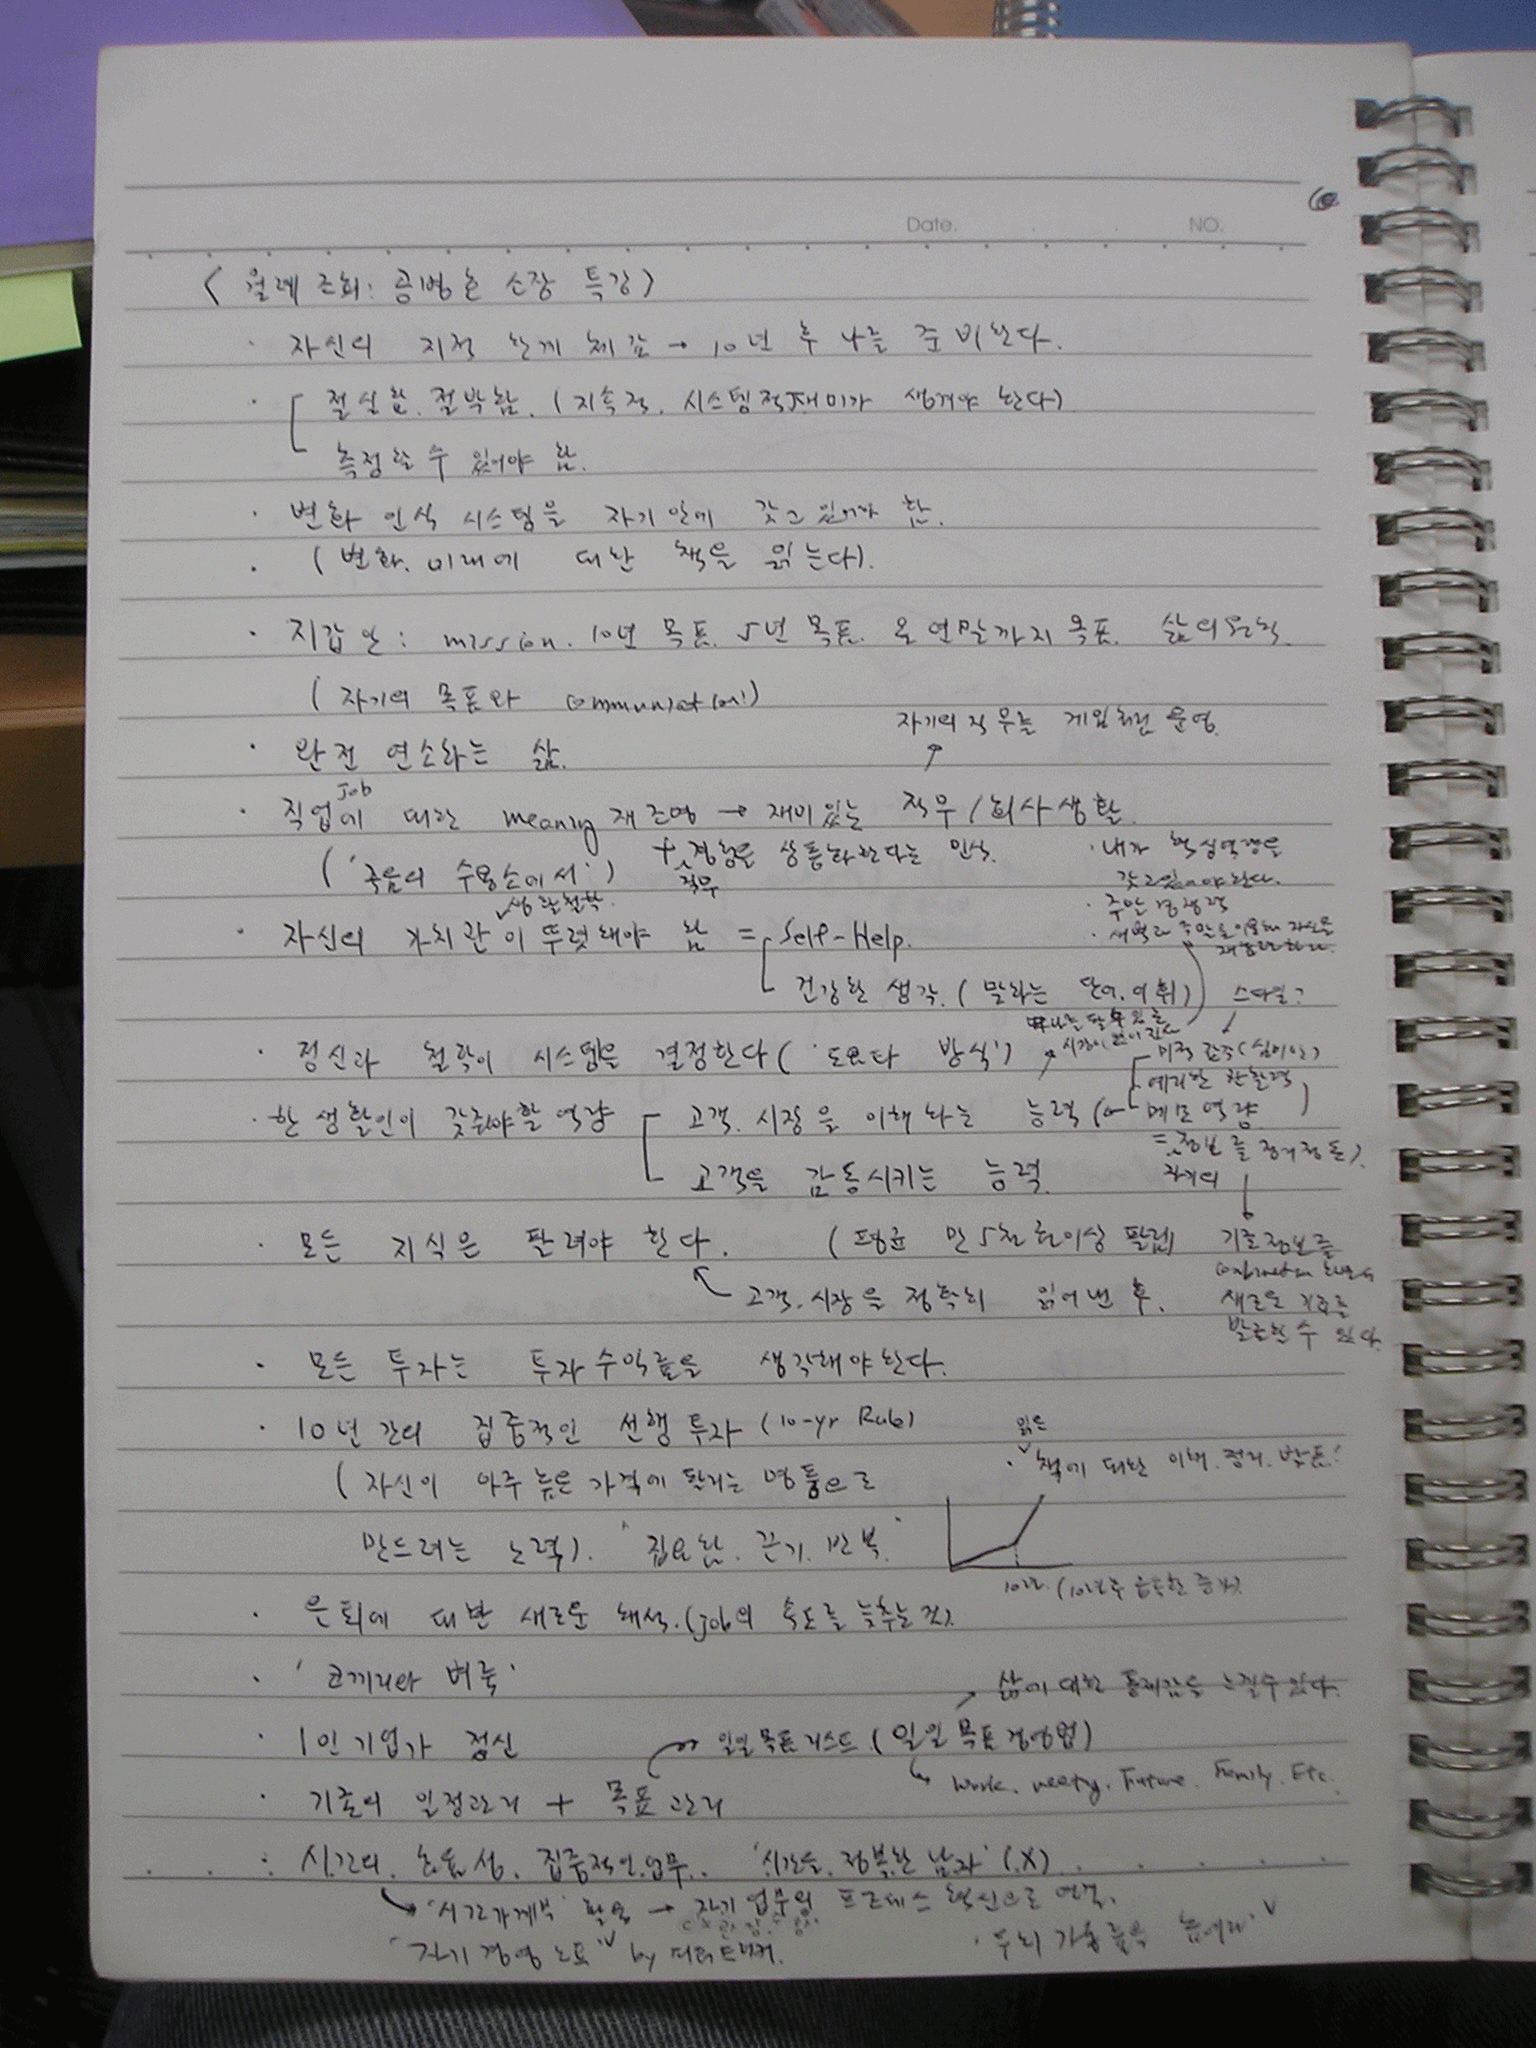 Date. NO.
<월례 조회: 공병호 소장 특강>
· 자신의 지적 한계 체감 → 10년 후 나를 준비한다.
· 절실함. 절박함. (지속적. 시스템적 재미가 생겨야 한다)
측정할 수 있어야 함.
· 변화 인식 시스템을 자기 안에 갖고 있어야 함.
· (변화. 미래에 대한 책을 읽는다).
· 지갑 안: mission. 10년 목표. 5년 목표. 올 연말까지 목표. 삶의 원칙.
(자기의 목표와 communication!)
자기의 직무를 게임처럼 운영.
· 완전 연소하는 삶.
job
· 직업에 대한 meaning 재조명 → 재미있는 직무/회사생활.
('죽음의 수용소에서') + 경험을 상품화한다는 인식.
직무
· 내가 핵심역량을
갖고 있어야 한다.
· 주말 경쟁력
· 새벽과 주말을 이용해 자신을
생활철학.
· 자신의 가치관이 뚜렷해야 함 = Self-Help.
건강한 생각. (말하는 단어. 어휘)
스타일?
· 정신과 철학이 시스템을 결정한다 ('도요타 방식')
미적 감각(심미안)
예리한 관찰력
· 한 생활인이 갖춰야할 역량 고객. 시장을 이해하는 능력 (← 메모 역량
= 정보를 정리정돈).
자기의
고객을 감동시키는 능력.
· 모든 지식은 팔려야 한다. (평균 만 5천 권이상 팔림)
고객. 시장을 정확히 읽어낸 후.
기존정보를
combination
새로운 가치를
발견할 수 있다.
· 모든 투자는 투자수익률을 생각해야 한다.
· 10년 간의 집중적인 선행 투자 (10-yr Rule)
읽은
· 책에 대한 이해. 정리. 발표!
(자신이 아주 높은 가격에 팔리는 명품으로
만드려는 노력). "집요함. 끈기. 반복."
10년. (10년후 급속한 증가).
· 은퇴에 대한 새로운 해석. (job의 속도를 늦추는 것).
· '코끼리와 벼룩'
삶에 대한 통제감을 느낄 수 있다.
· 1인 기업가 정신
일일 목표 리스트. (일일 목표 경영법)
work. Future. Family. Etc.
· 기존의 일정관리 + 목표 관리
: 시간의 효율성. 집중적인 업무.. '시간을 정복한 남자' (X)
'시간가계부' 활용 → 자기 업무의 프로세스 혁신으로 연결.
"자기 경영 노트" by 피터드러커.
· 두뇌 가동률을 높여라.